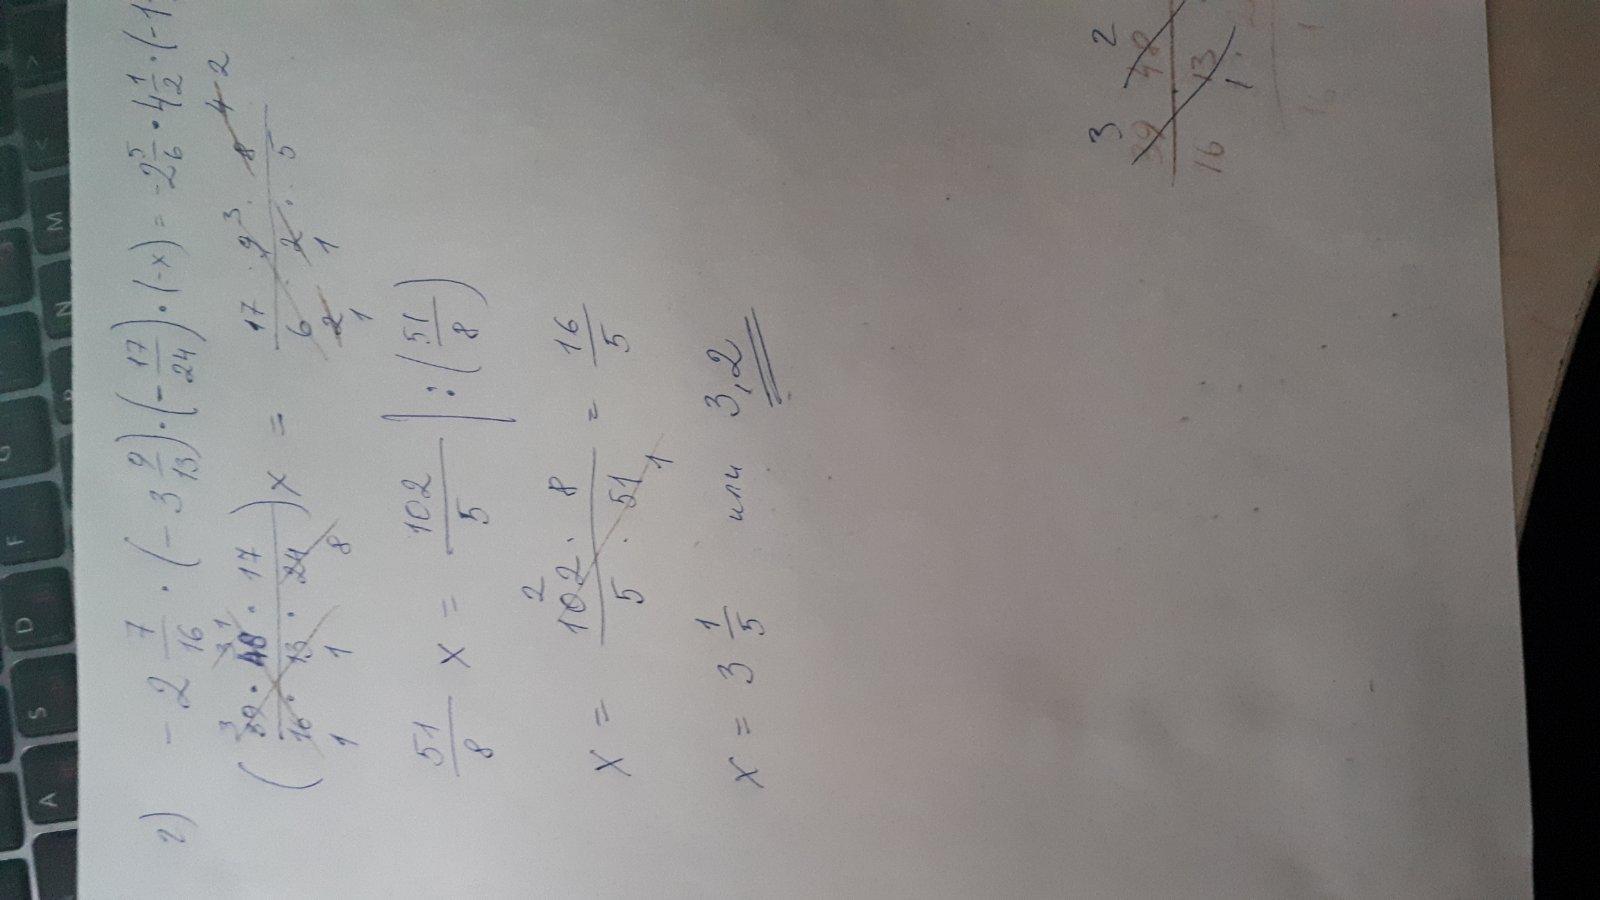 г) - 2 7/16 · (- 3 9/13) · (- 17/24) · (-x) = -2 5/6 · 4 1/2 · (-1
(39 · 48 · 17 / 16 · 13 · 24) x = 17 · 9 · 8 / 6 · 2 · 5
51/8 x = 102/5 : (51/8)
x = 102 · 8 / 5 · 51 = 16/5
x = 3 1/5 или 3,2
39 48
16 13
A S D F G M N